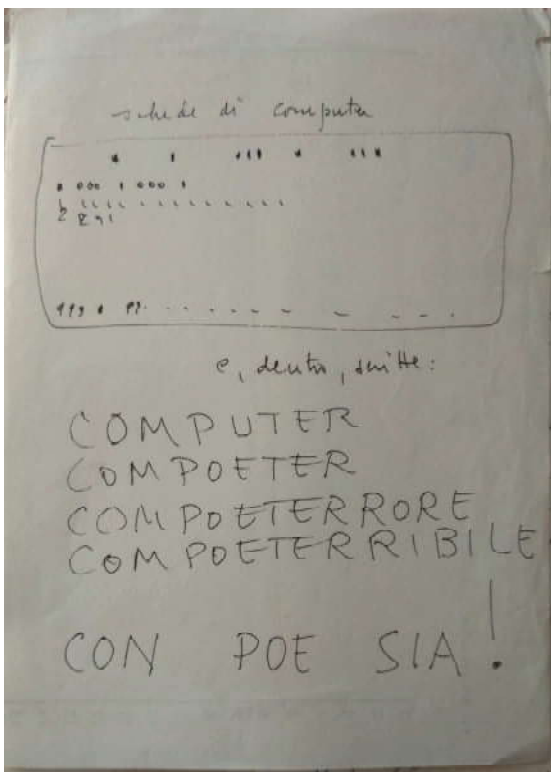 schede di computer
e, dentro, scritte:
COMPUTER
COMPOETER
COMPOETERRORE
COMPOETERRIBILE
CON POE SIA!